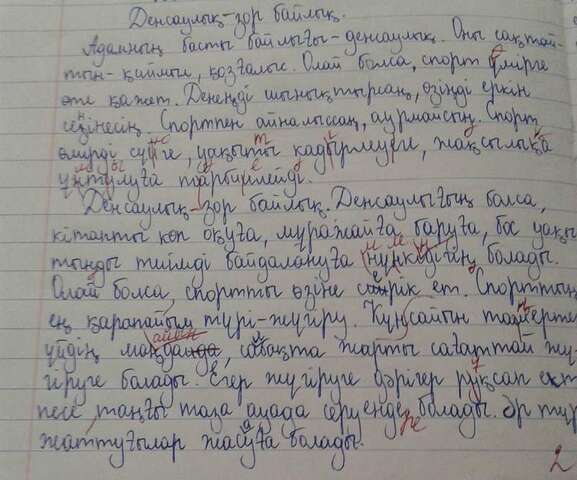 Денсаулық-зор байлық.
Адамның басты байлығы-денсаулық. Оны сақтай-
тын-қимыл, қозғалыс. Олай болса, спорт өмірге
өте қажет. Денеңді шынықтырсаң, өзіңді еркін
сезінесің. Спортпен айналыссаң, аурмайсың. Спорт
өмірді сүйге, уақытты қадірлеуге, жақсылыққа
ұмтылуға тәрбиелейді.
Денсаулық-зор байлық. Денсаулығың болса,
кітапты көп оқуға, мұражайға баруға, бос уақы
тыңды тиімді байдалануға мүмкіндігің болады.
Олай болса, спортты өзіңе серік ет. Спорттың
ең қарапайым түрі-жүгіру. Күнсайын таңертең
үйдің маңайында, сабақта жарты сағаттай жү-
гіруге болады. Егер жүгіруге дәрігер рұқсат ет
песе, таңғы таза ауада серуендеуге болады. Әр түр
жаттуғылар жасауға болады.
2